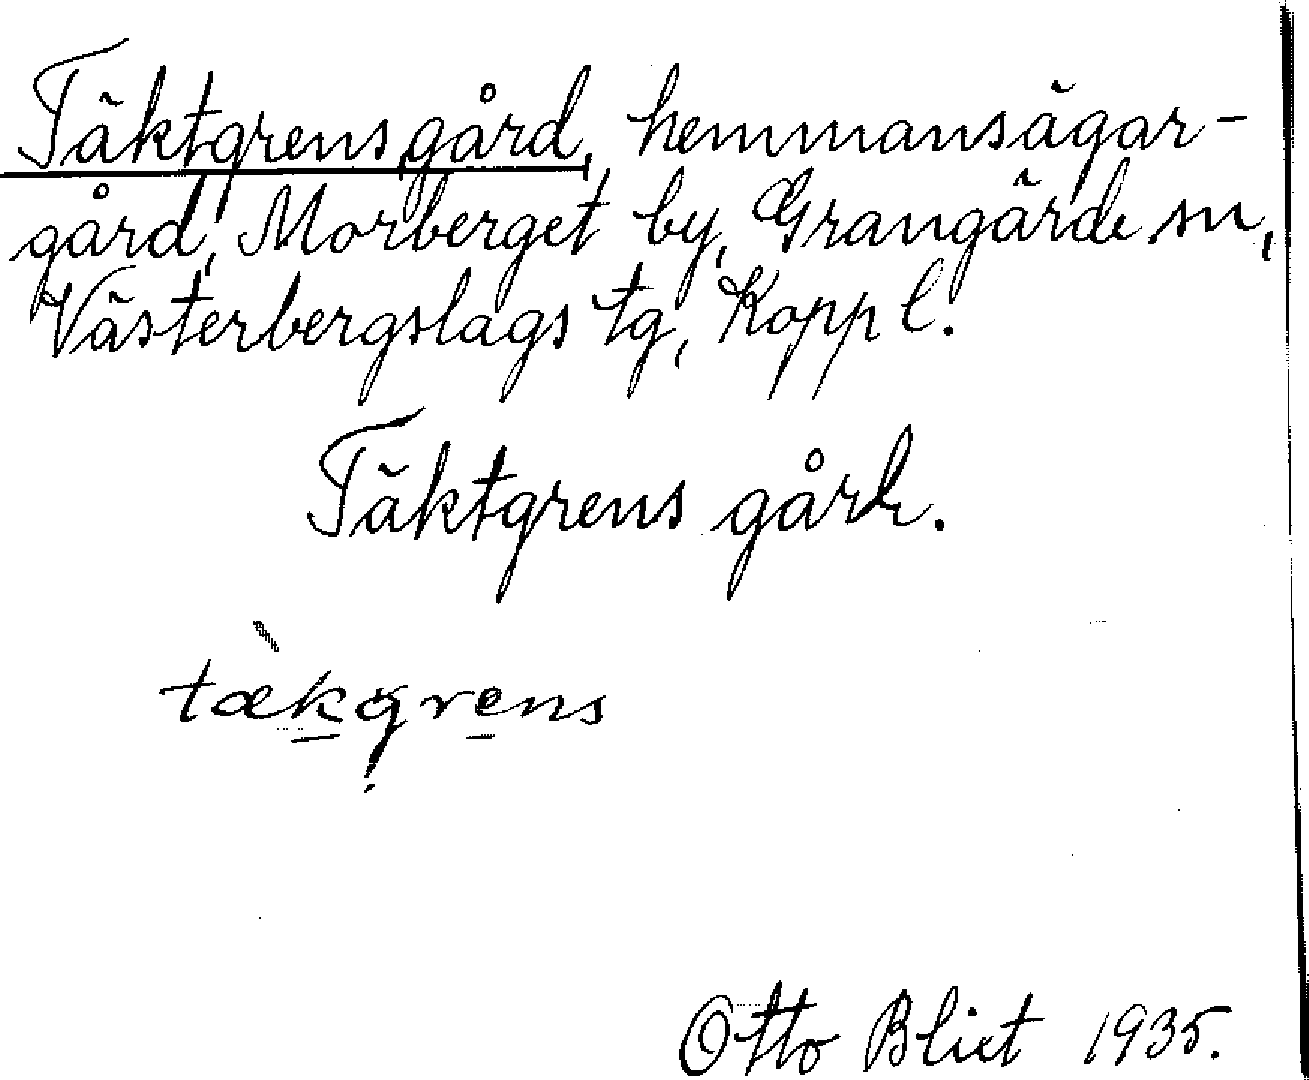 Täktgrensgård, hemmansägar-
gård, Morberget by, Grangärde sn,
Västerbergslags tg, Kopp l.
Täktgrens gård.
tækgrens
Otto Blixt 1935.